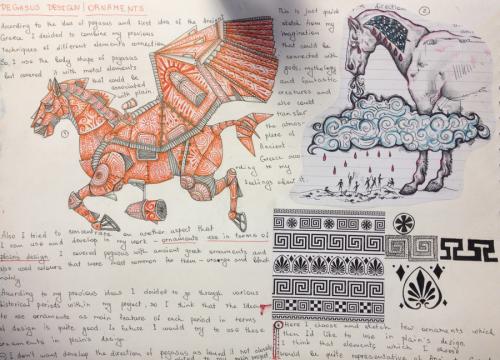 PEGASUS DESIGN/ORNAMENTS
According to the idea of pegasus and first idea of the Ancient
Greece I decided to combine my previous
techniques of different elements connection.
So, I was the body shape of pegasus
but covered it with metal elements
that could be
associated
with plain
1
This is just quick
sketch from my
imagination
that could be
connected with
gods, mythology
and fantastic
creatures and
also could
transfer
the atmos-
phere of
Ancient
Greece acco-
rding to my
feelings about it.
direction
2
Also I tried to concentrate on another aspect that
I can use and develop in my work - ornaments use in terms of
plain's design. I covered pegasus with ancient greek ornaments and
also used colours that were most common for them - orange and black
mainly.
According to my previous ideas I decided to go through various
historical periods within my project, so I think that the idea
to use ornaments as main feature of each period in terms
of design is quite good. In future I would try to use these
ornaments in plain's design.
I don't want develop the direction of pegasus as
Here I choose and sketch few ornaments which
I'd like to use in plain's design.
I think that elements which I chose
would be quite representative